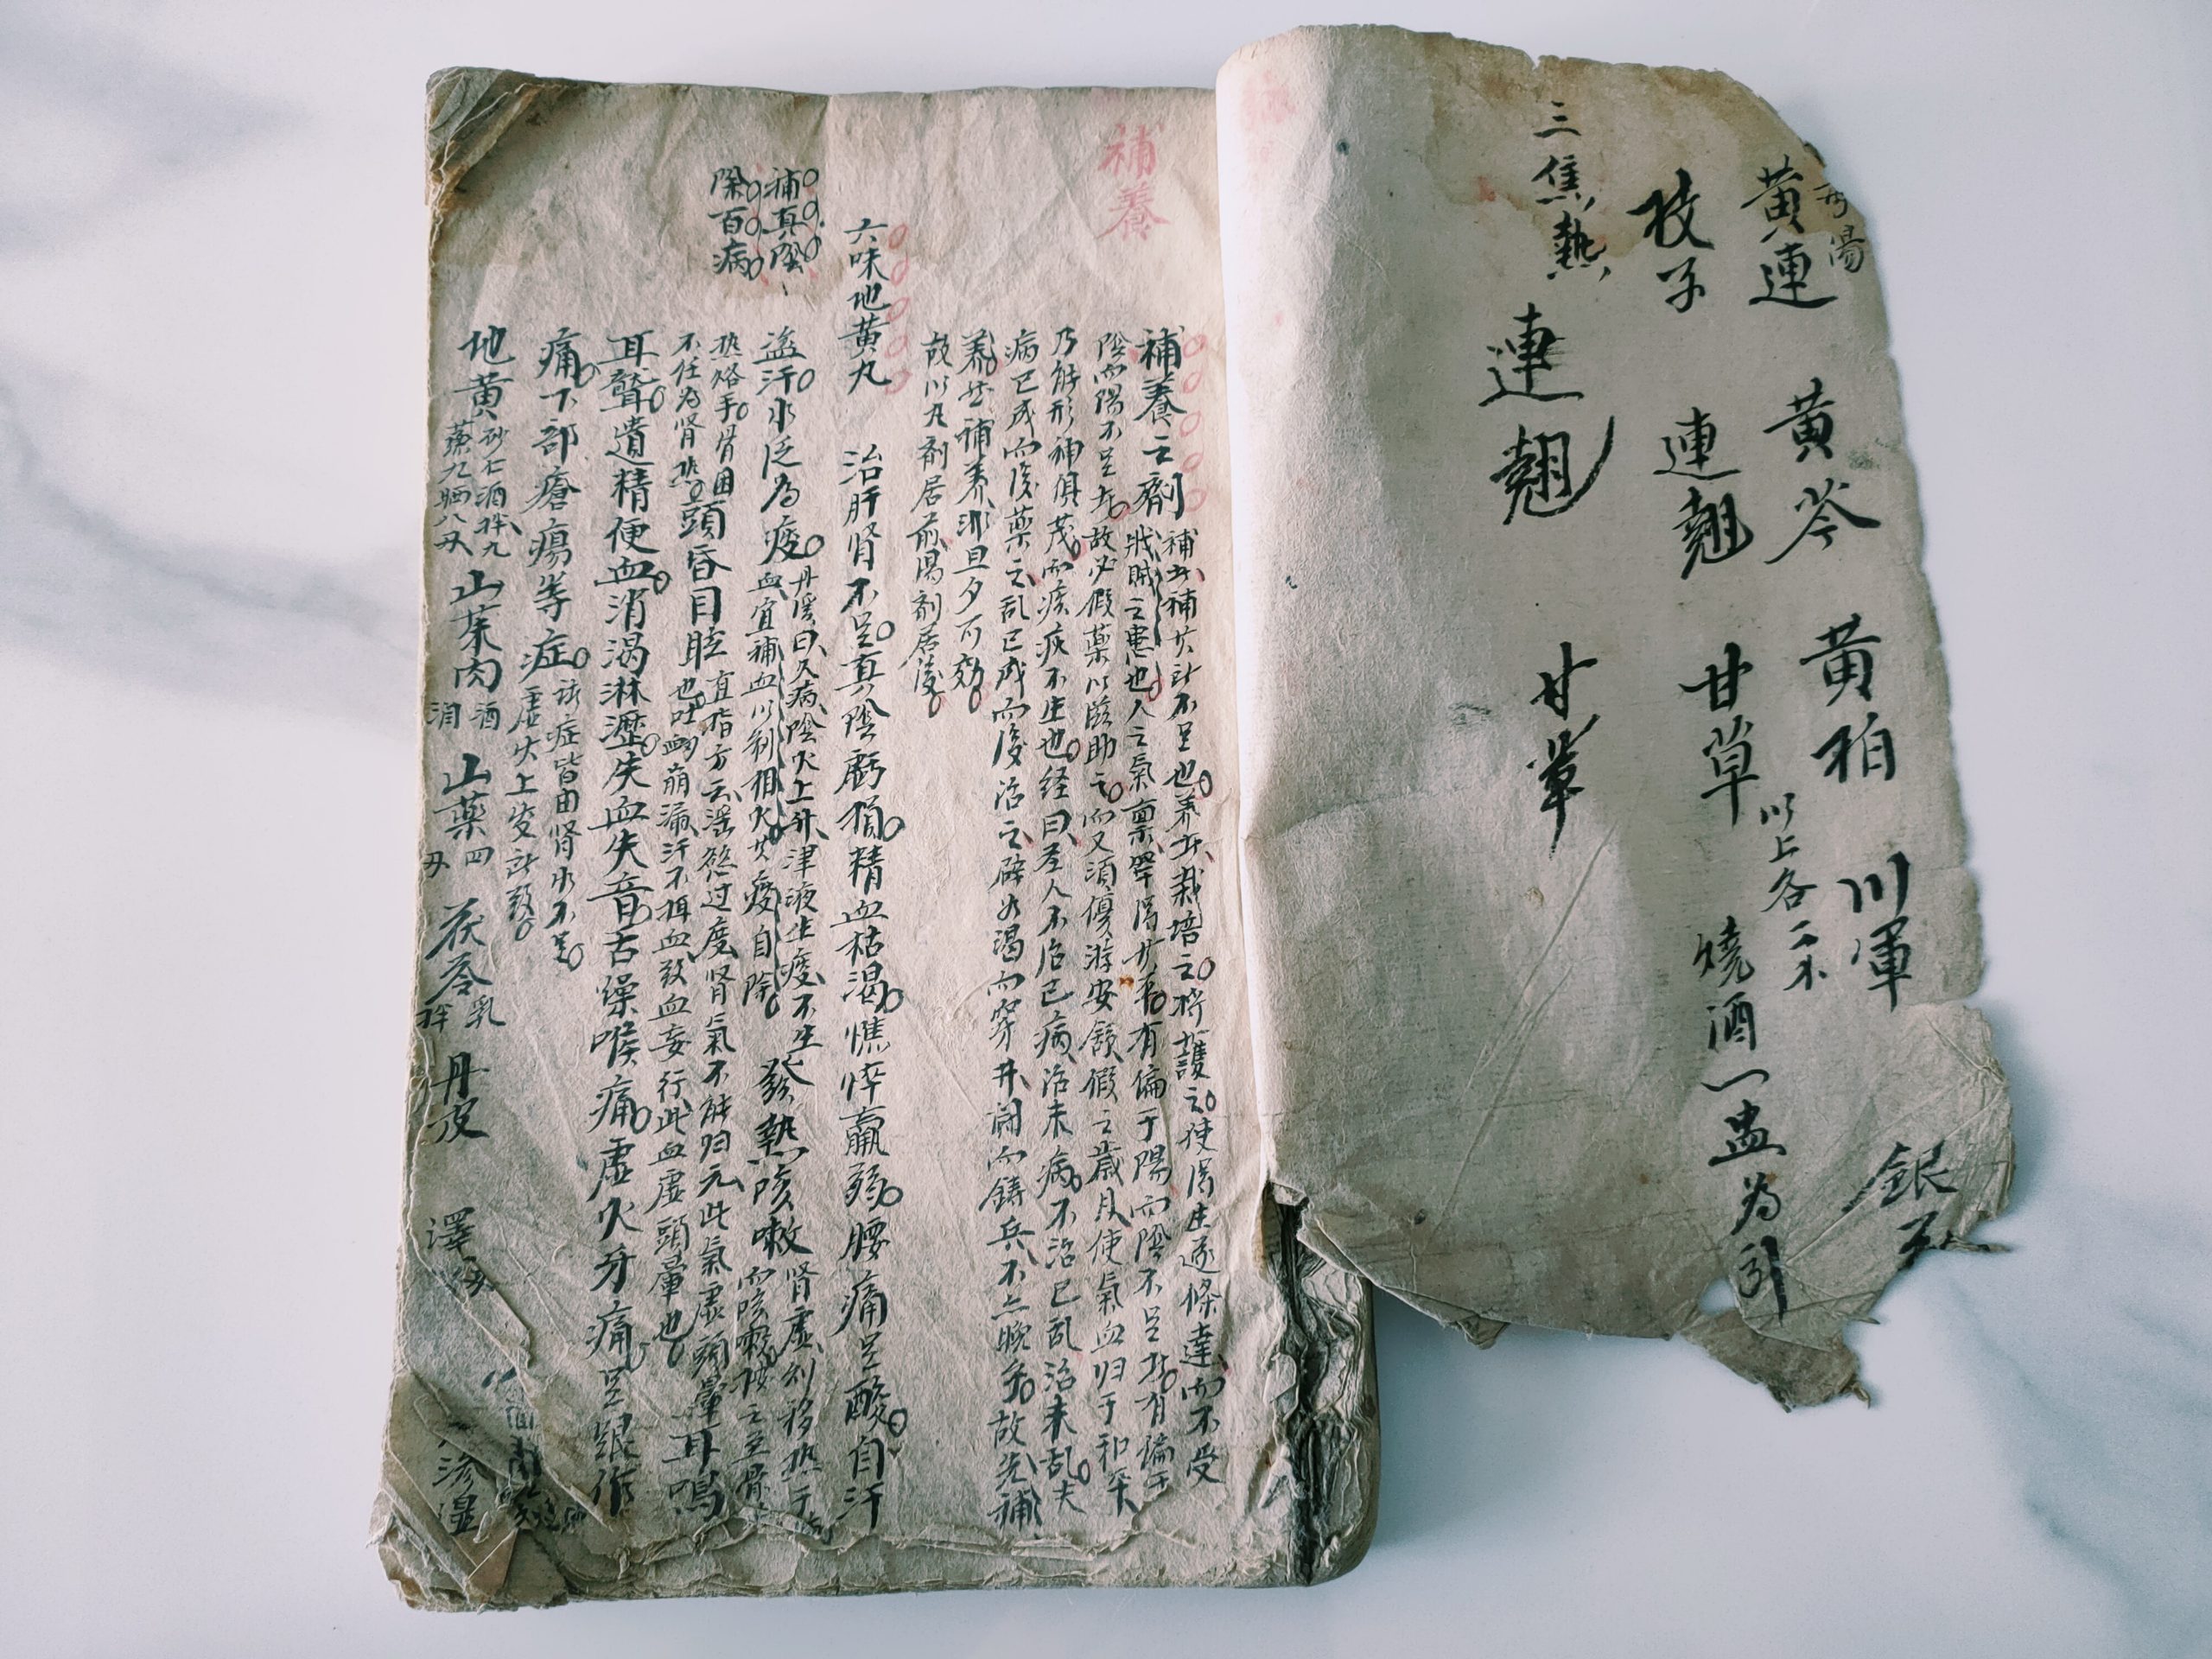 丹湯
黄連 黄芩 黄栢 川軍 銀
枝子 連翹 甘草 以上各二不
燒酒一盅為引
三焦熱
連翹 甘草
補養
補養之劑 補者補其所不足也養者栽培之將護之使得生遂條達而不受
戕賊之患也人之氣禀罕得其平有偏于陽而陰不足者有偏于
陰而陽不足者故必假藥以滋助之而又須優游安舒假之歲月使氣血归于和平
乃能形神俱茂而疾疢不生也经曰圣人不治已病治未病不治已乱治未乱夫
病已成而後藥之乱已成而後治之辟如渴而穿井闘而鋳兵不亦晚乎故先補
養然補養非旦夕可効
故以丸劑居前湯劑居後
六味地黄丸 治肝肾不足真陰虧損精血枯渴憔悴羸弱腰痛足酸自汗
補真陰
除百病
盗汗水泛為痰 丹溪曰久病陰火上升津液生痰不生
血宜補血以制相火其痰自除 發熱咳嗽 肾虚則移热于
而咳嗽按之至骨
热烙手骨困
不任為肾热 頭昏目眩 直指方云淫慾过度肾氣不能归元此氣虚頭暈
也吐衄崩漏汗不摂血致血妄行此血虚頭暈也 耳鳴
耳聾遺精便血消渴淋瀝失血失音舌燥喉痛虚火牙痛足跟作
痛下部瘡瘍等症 諸症皆由肾水不足
虚火上炎所致
地黄 砂仁酒拌九
蒸九晒八刄 山茱肉 酒
潤 山藥 四
刄 茯苓 乳
拌 丹皮 澤 滲湿